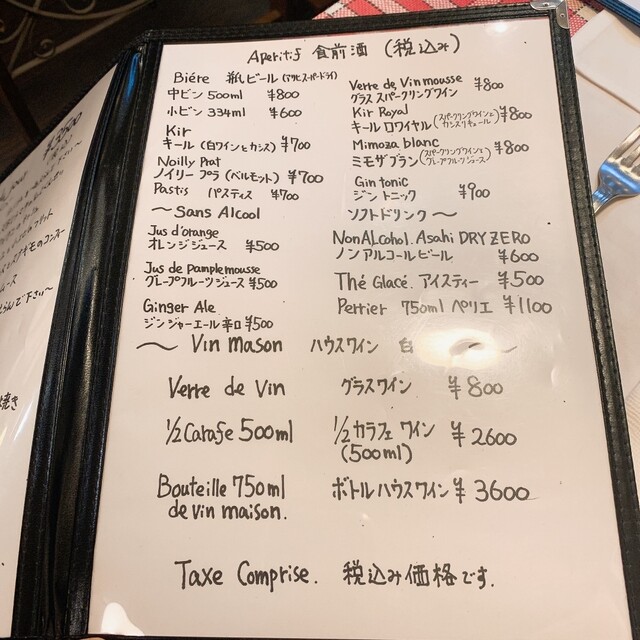 Aperitif 食前酒 (税込み)
Biére 瓶ビール (アサヒスーパードライ)
中ビン 500ml ¥800
小ビン 334ml ¥600
Kir
キール (白ワインとカシス) ¥700
Noilly Prat
ノイリー プラ (ベルモット) ¥700
Pastis パスティス ¥700
Verre de Vin mousse ¥800
グラス スパークリングワイン
Kir Royal
キール ロワイヤル (スパークリングワインとカシスリキュール) ¥800
Mimoza blanc
ミモザ ブラン (スパークリングワインとグレープフルーツジュース) ¥800
Gin tonic
ジン トニック ¥900
～Sans Alcool ソフトドリンク～
Jus d'orange
オレンジジュース ¥500
Jus de Pamplemousse
グレープフルーツジュース ¥500
Ginger Ale
ジンジャーエール辛口 ¥500
NonALcohol. Asahi DRY ZERO
ノンアルコールビール ¥600
Thé Glacé. アイスティー ¥500
Perrier 750ml ペリエ ¥1100
～ Vin mason ハウスワイン 白 ～
Verre de Vin グラスワイン ¥800
1/2 Carafe 500ml 1/2 カラフェ ワイン ¥2600
(500ml)
Bouteille 750ml ボトルハウスワイン ¥3600
de vin maison.
Taxe Comprise. 税込み価格です.